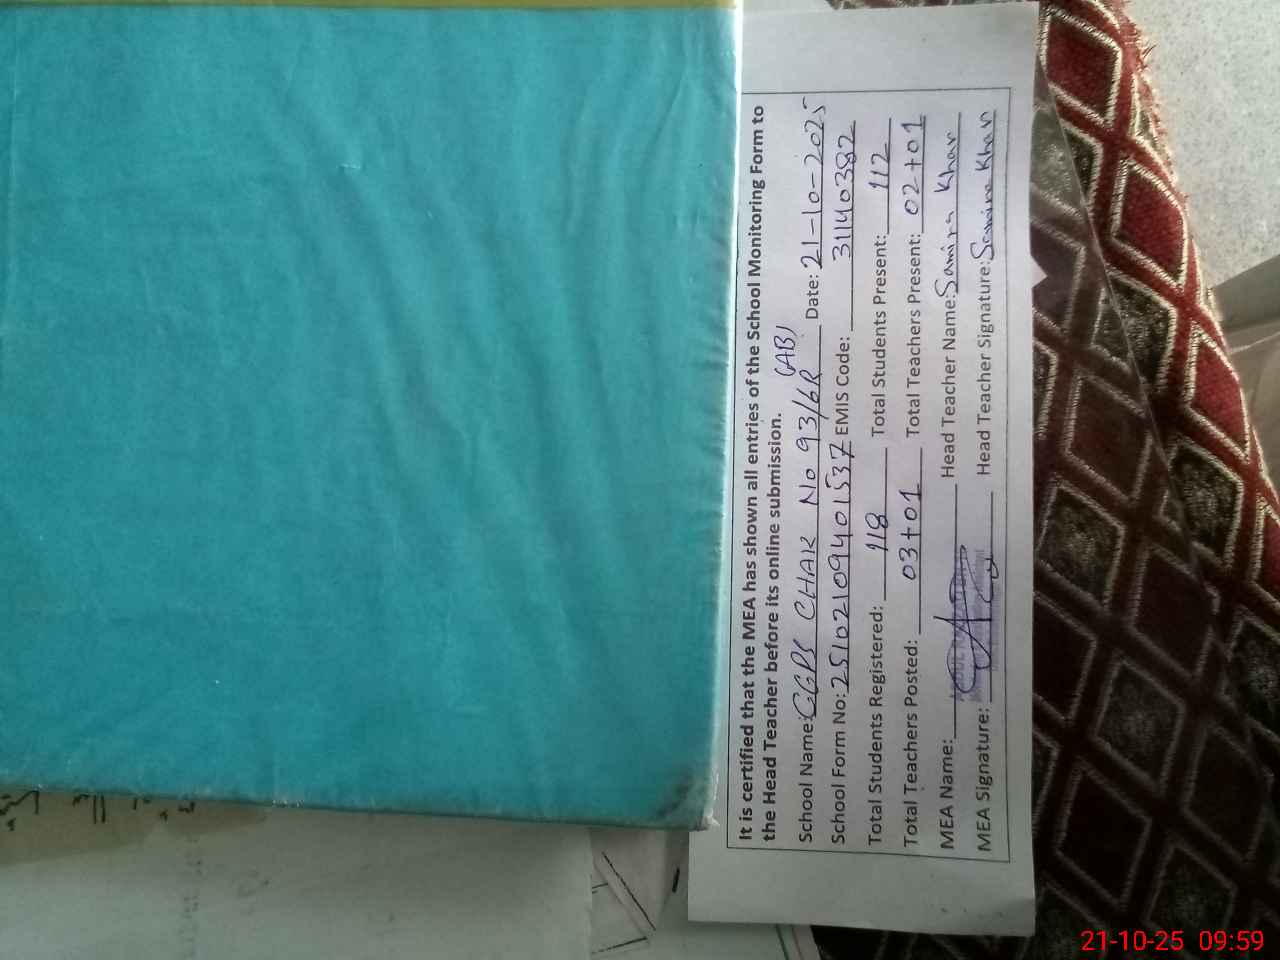 It is certified that the MEA has shown all entries of the School Monitoring Form to
the Head Teacher before its online submission.
School Name: GGPS CHAK No 93/6R (AB) Date: 21-10-2025
School Form No: 2510210940 1537 EMIS Code: 31140382
Total Students Registered: 118 Total Students Present: 112
Total Teachers Posted: 03+01 Total Teachers Present: 02+01
MEA Name: Head Teacher Name: Samina Khan
MEA Signature: Head Teacher Signature: Samina Khan
21-10-25 09:59